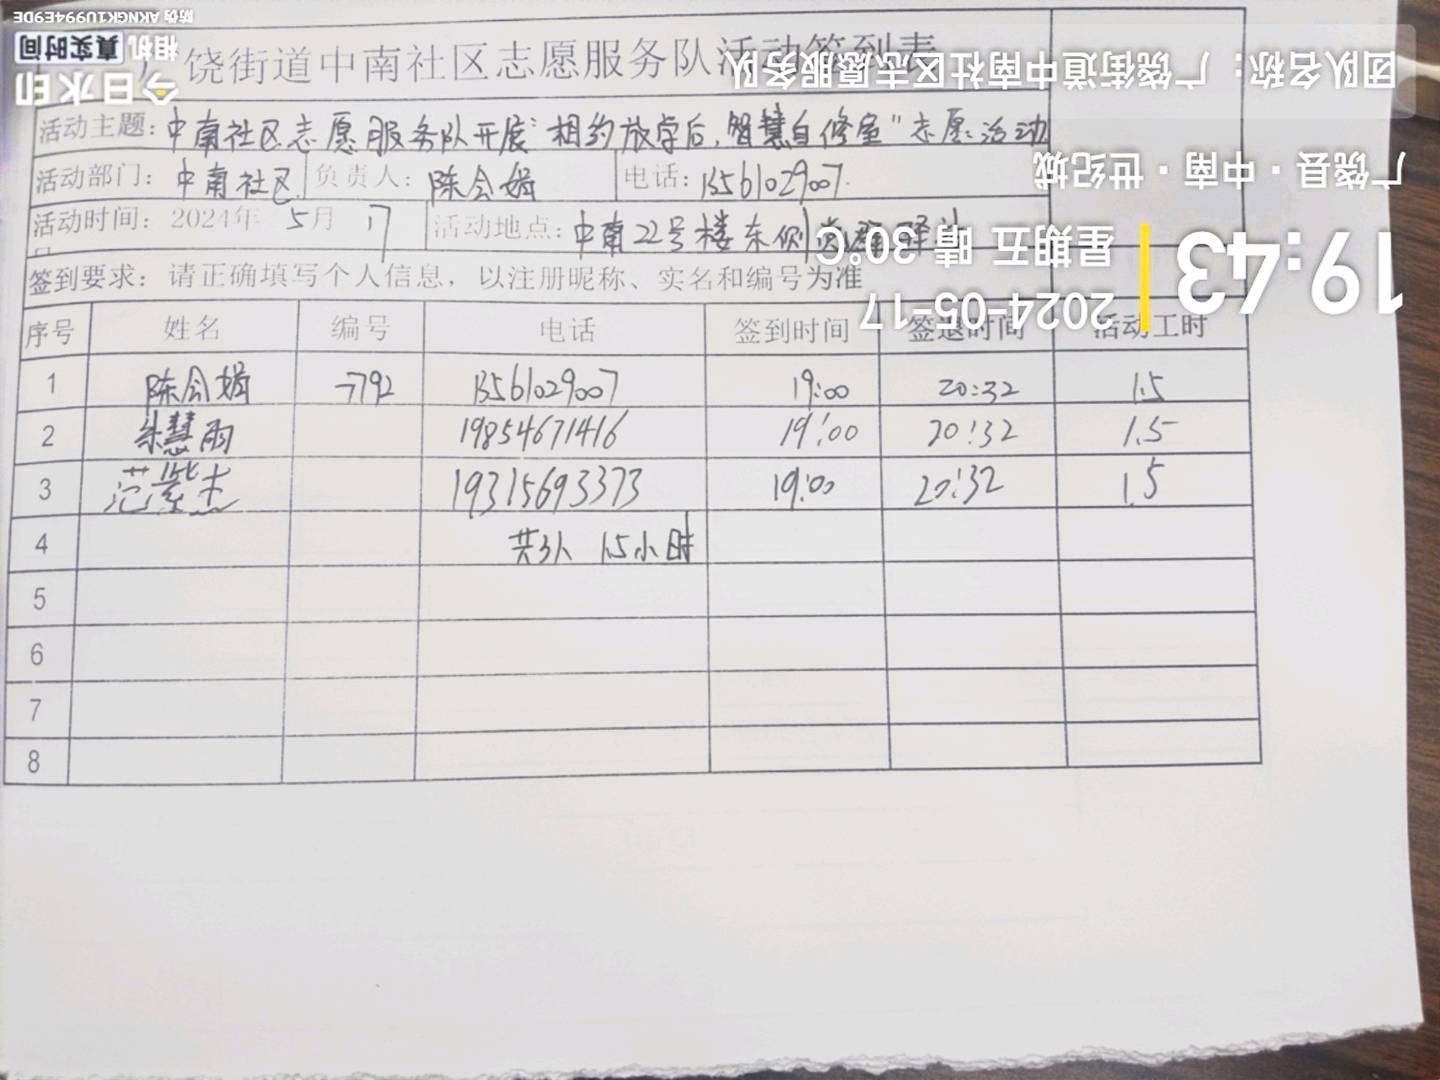 饶街道中南社区志愿服务队活动签到表
活动主题：中南社区志愿服务队开展"相约放学后,智慧自修室"志愿活动
活动部门：中南社区 负责人：陈会娟 电话：13561029007
活动时间：2024年 5月 17 活动地点：中南22号楼东侧
签到要求：请正确填写个人信息，以注册昵称、实名和编号为准
序号 姓名 编号 电话 签到时间 签退时间 活动工时
1 陈会娟 7792 13561029007 19:00 20:32 1.5
2 朱慧雨 19854671416 19:00 20:32 1.5
3 范紫杰 19315693373 19:00 20:32 1.5
4 共3人 1.5小时
5
6
7
8
19:43
2024-05-17
星期五 晴 30℃
广饶县·中南·世纪城
团队名称：广饶街道中南社区志愿服务队
今日水印
相机 真实时间
防伪 AKNGK1U994E9DE